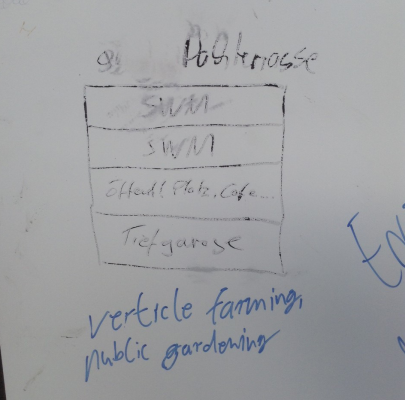 Dachterrasse
SWM
SWM
Öffentl. Platz, Cafe...
Tiefgarage
verticle farming,
public gardening